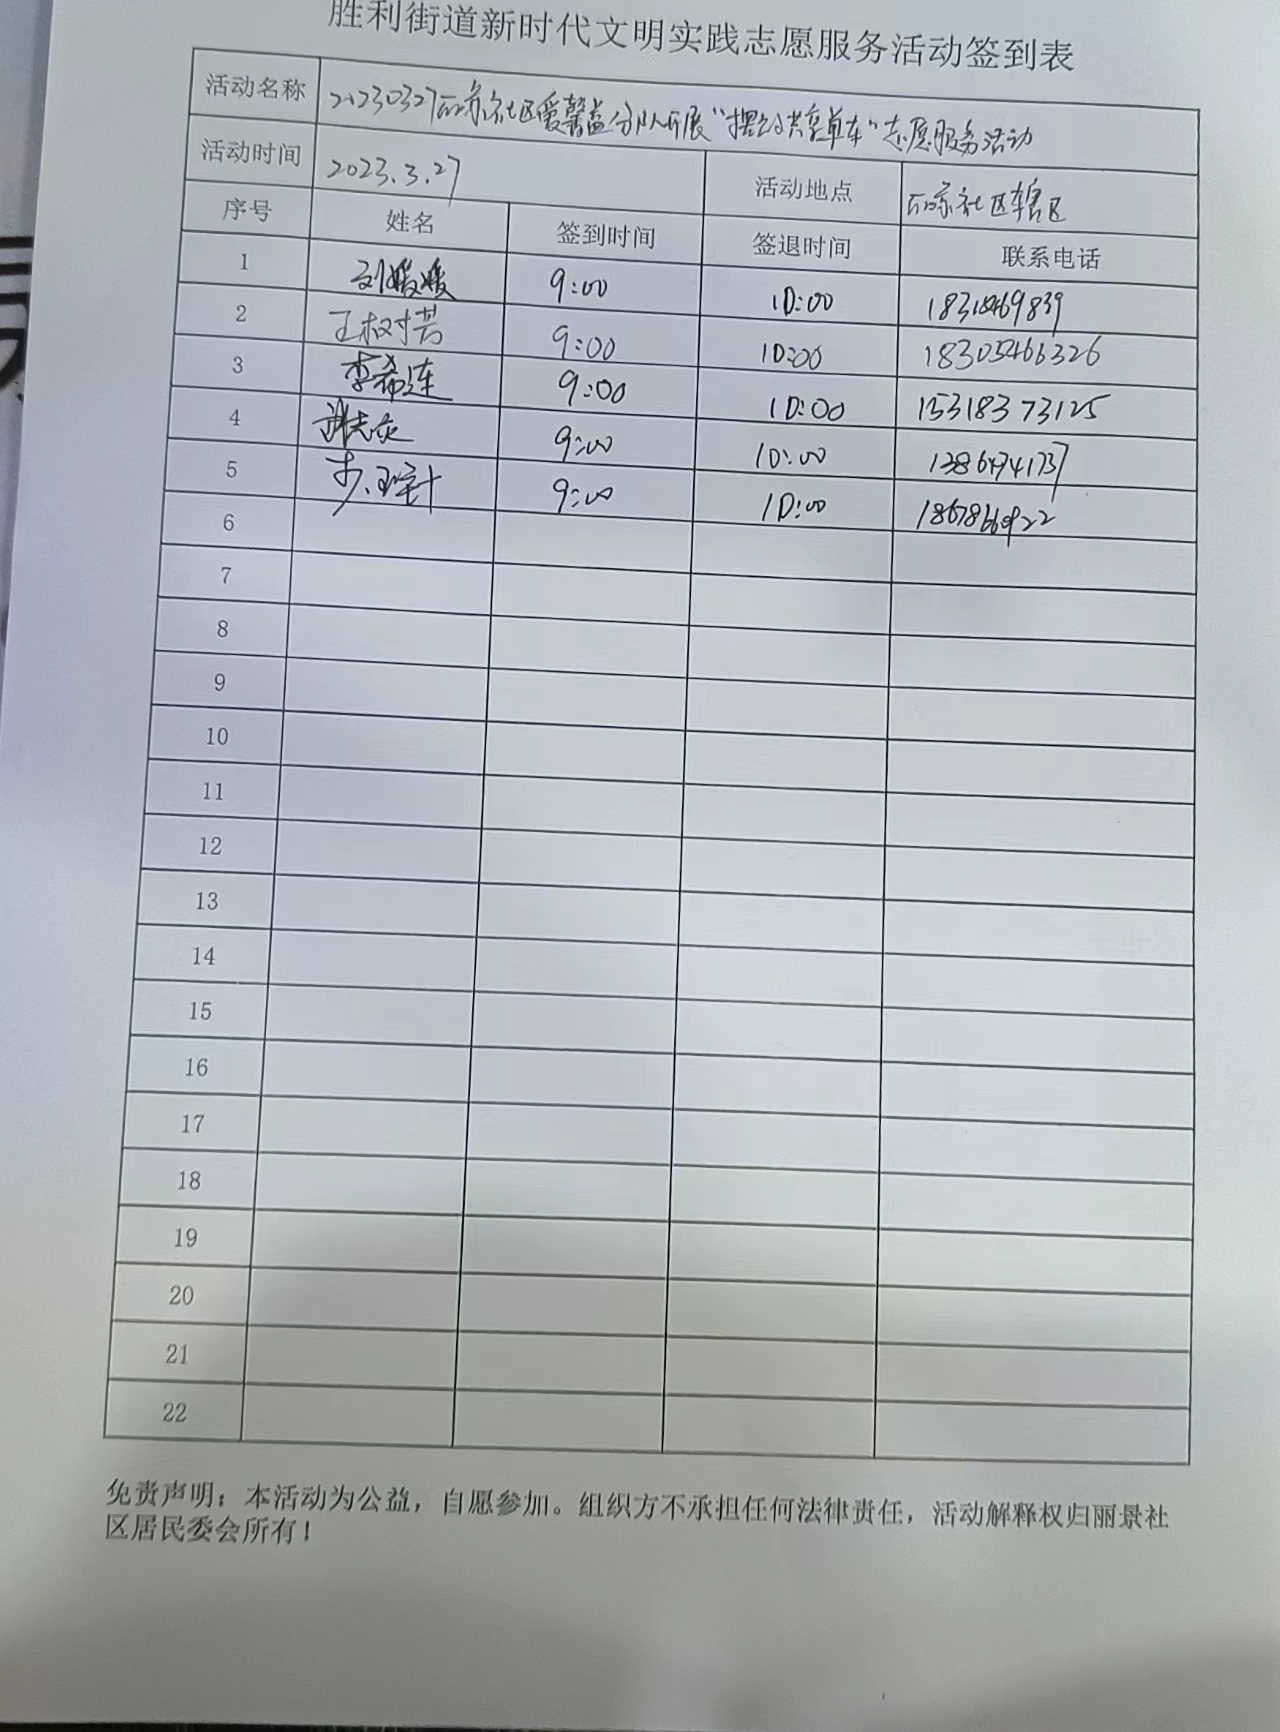 胜利街道新时代文明实践志愿服务活动签到表
活动名称 20230327丽景社区爱馨益分队开展“摆放共享单车”志愿服务活动
活动时间 2023.3.27 活动地点 丽景社区辖区
序号 姓名 签到时间 签退时间 联系电话
1 刘媛媛 9:00 10:00
2 王树芳 9:00 10:00 18305466326
3 李希连 9:00 10:00 15318373125
4 9:00 10:00
5 9:00 10:00 18678660922
6
7
8
9
10
11
12
13
14
15
16
17
18
19
20
21
22
免责声明：本活动为公益，自愿参加。组织方不承担任何法律责任，活动解释权归丽景社
区居民委会所有！